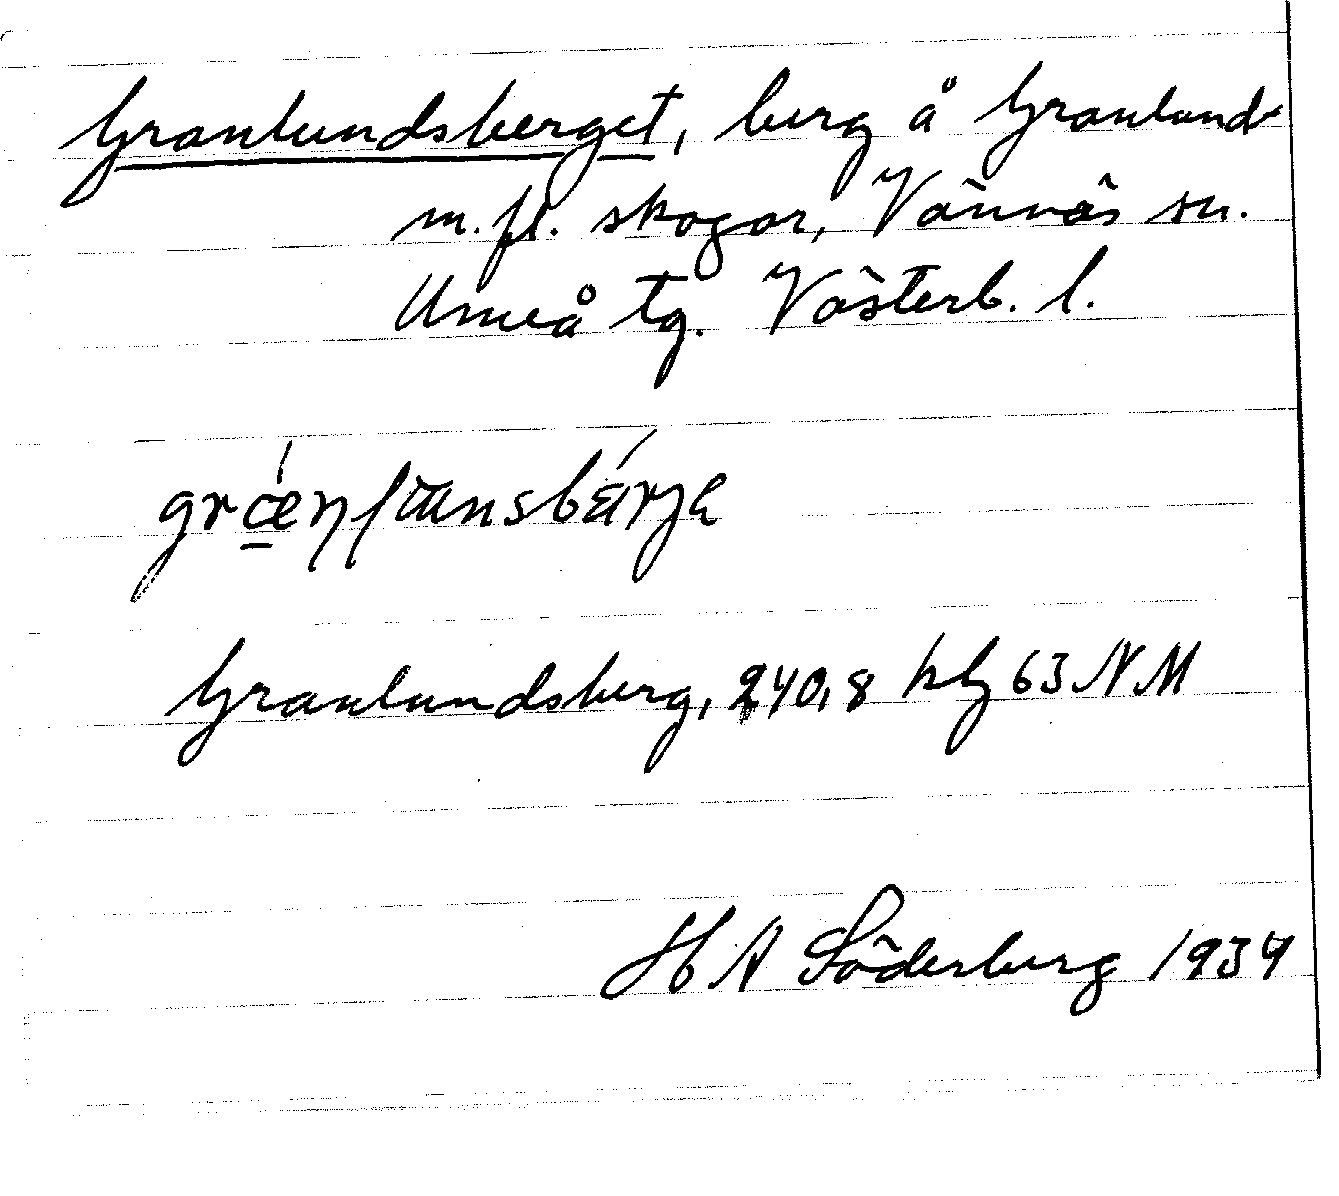 Granlundsberget, berg å Granlund
m. fl. skogar, Vännäs sn.
Umeå tg. Västerb. l.
Granlundsberg, 240,8 kbl 63 NM
H A Söderberg 1934